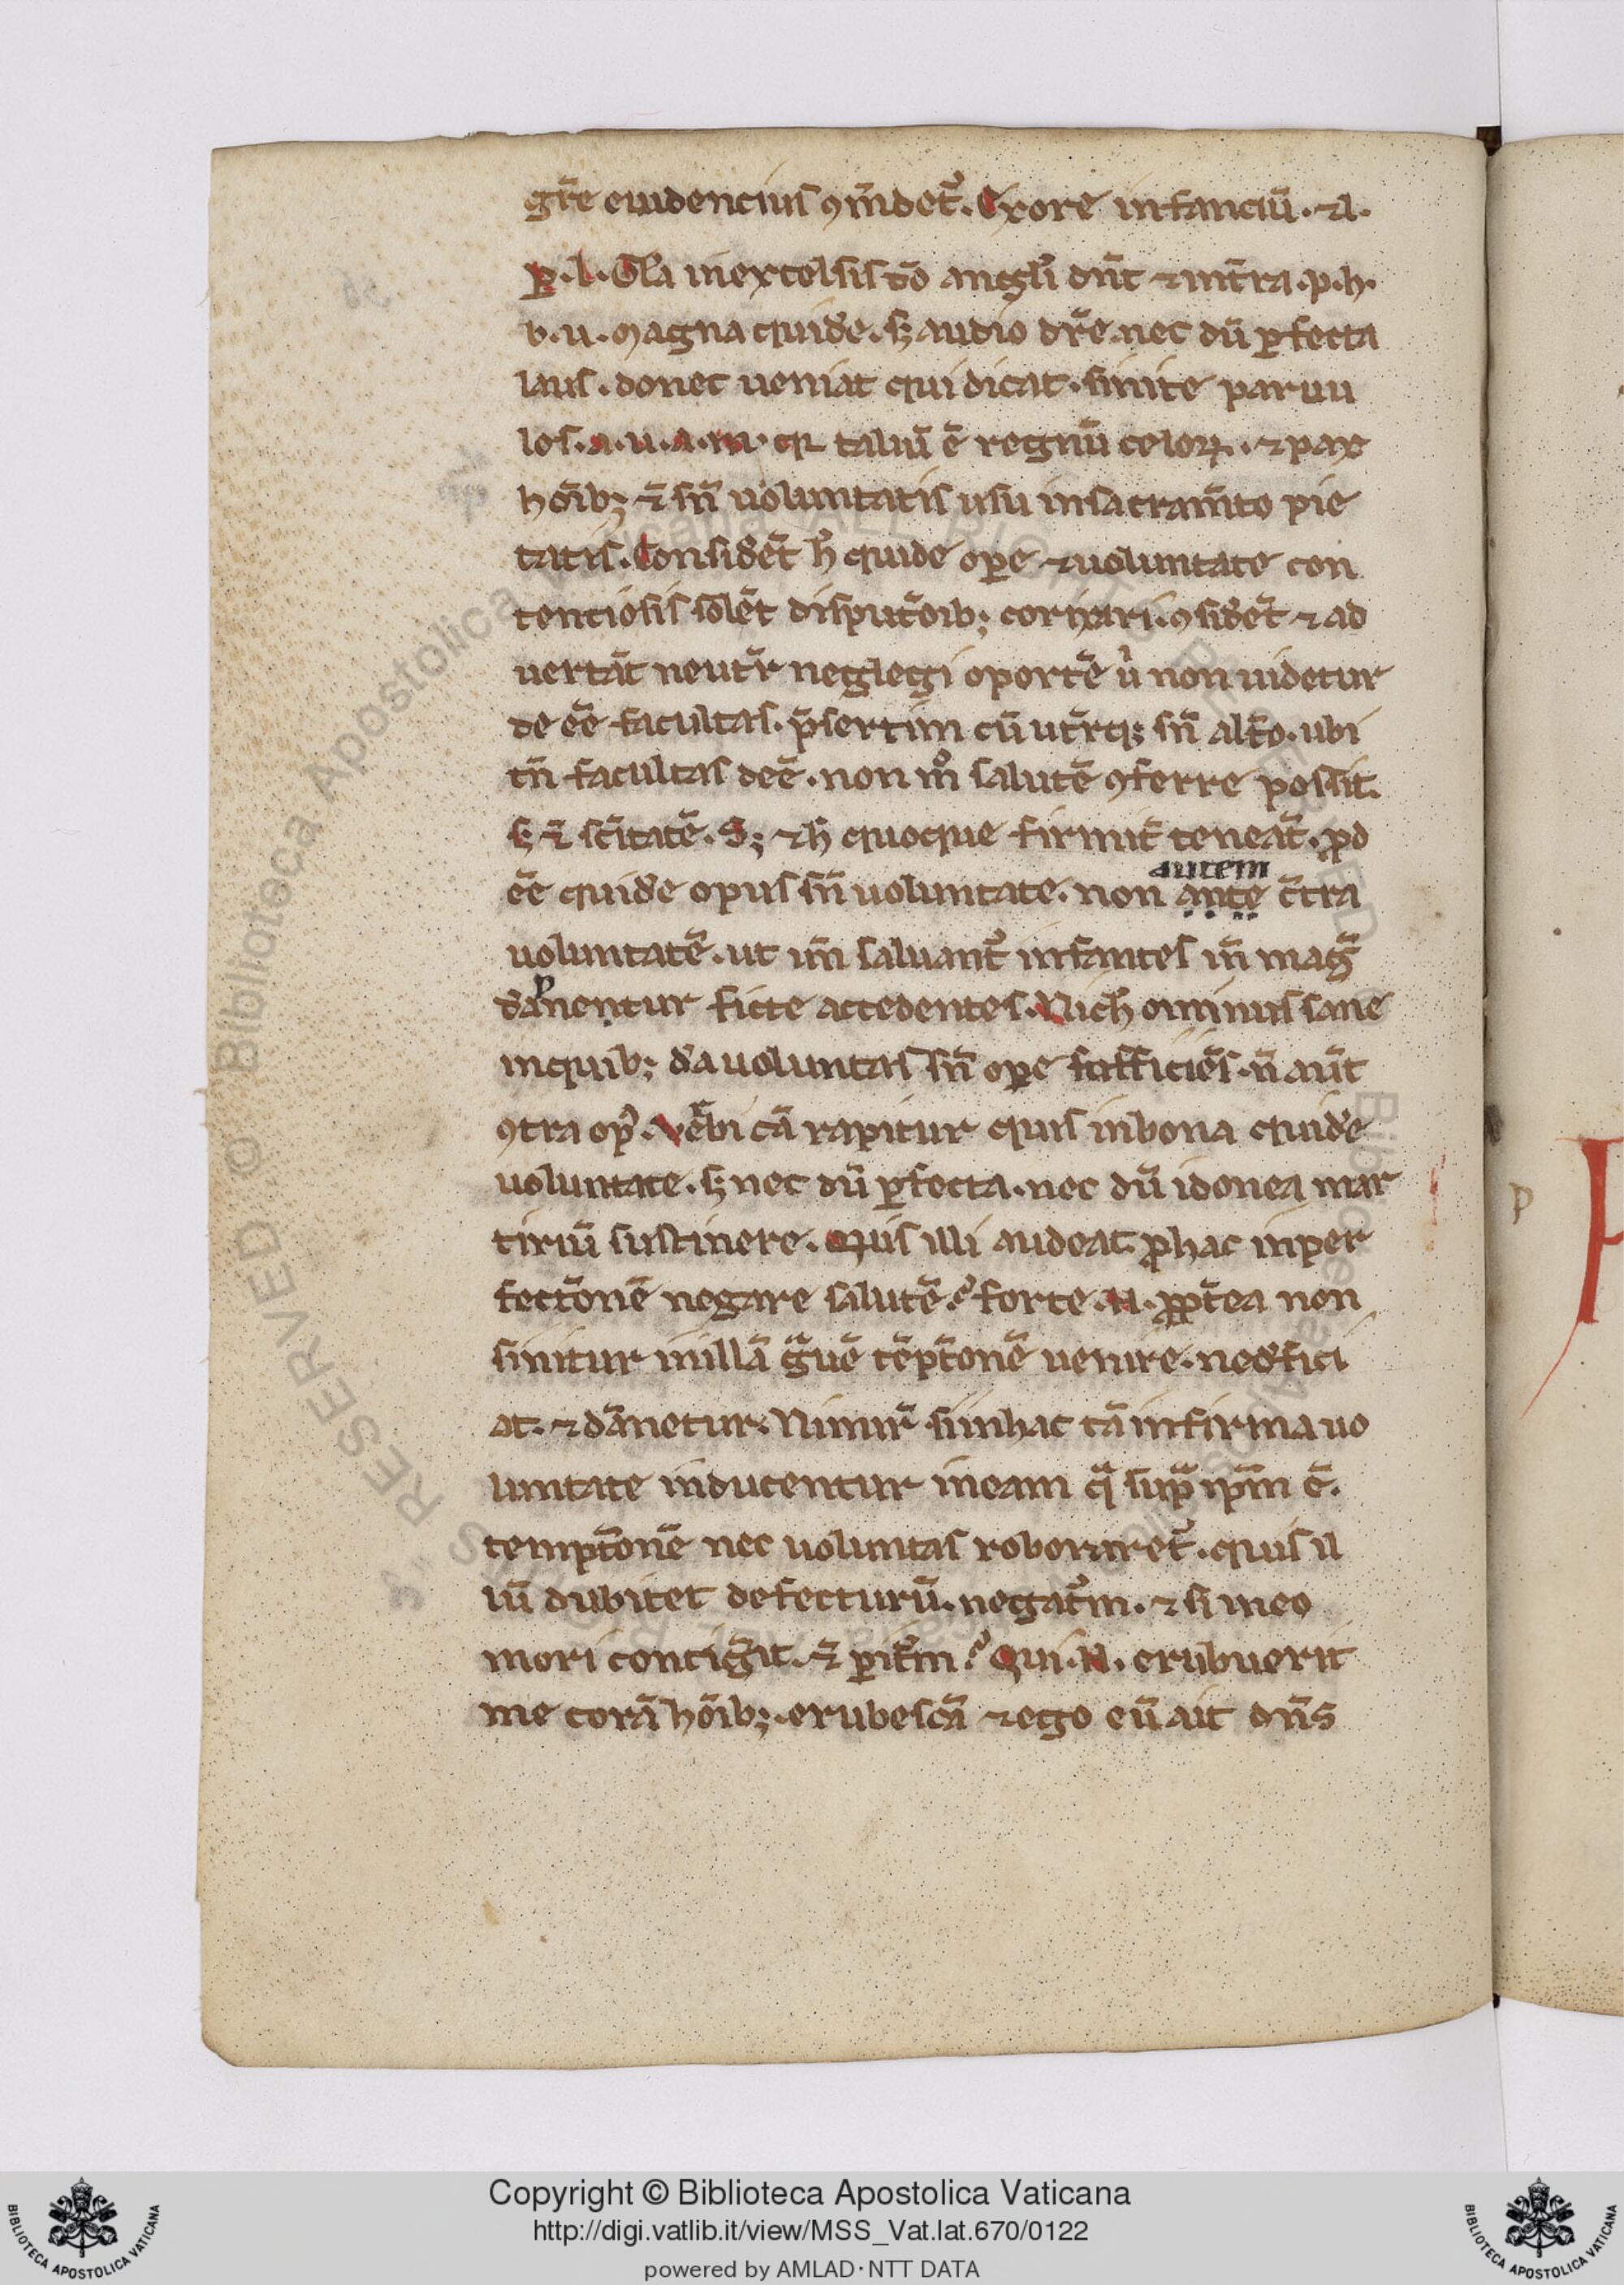 gr̄e euidencius ꝯm̄det᷑. Ex ore infanciū. ⁊ a.
ꝑ. l. Gl̓a in excelsis dō angl̓i dn̄t ⁊ in t̄ra. p. h.
b. u. Magna quid̄e. sꝫ audio dr̄e. nec dū ꝑfecta
laus. donec ueniat qui dicat. sinite paruu
los. a. u. a. m. qꝛ taliū ē regnū celoꝝ. ⁊ pax
hōibꝫ ⁊̄ sn̄ uoluntatis usu in sacram̄to pie
tatis. Consid̓et h̓ quide oꝑe ⁊ uoluntate con
tenciosis sol̓et disput̄oibꝫ corixari. ꝯsid̓et ⁊ ad
uertāt neut᷑r neglegi oportē ů non uidetur
de ēe facultas. p̄sertim cū ut᷑rqꝫ sn̄ alt̓o. ubi
tn̄ facultas deē. non mͦ salutē ꝯferre possit.
sꝫ ⁊̄ sc̄itatē. Sꝫ ⁊ h̓ quoque firmit̓ teneāt. ꝓd
ēe quid̄e opus sn̄ uoluntate. non ante autem c̄tra
uoluntatē. ut im̄ saluant᷑ infantes im̄ mag̓
dampnentur ficte accedentes. Nich̓ ominus sane
in quibꝫ d̓a uoluntas sn̄ oꝑe sufficiēs. n̄ aūt
ꝯtra opꝰ. Verbi cā rapitur quis in bona quid̄e
uoluntate. sꝫ nec dū ꝑfecta. nec dū idonea mar
tiriū sustinere. Quis illi audeat ꝓ hac inper
fect̄onē negare salutē? forte. N. ꝓpt̄ea non
sinitur in illā g̓uē tēpt̄onē uenire. ne d̓fici
at. ⁊ dānetur. Nimir̄ si in hac tā infirma uo
luntate inducentur in eam q̓ sup̓ ip̄m ē.
tempt̄onē nec uoluntas roboraret᷑. quis il
lū dubitet defecturū. negat᷑m. ⁊ si in eo
mori contig̓it. ⁊̄ ꝑit᷑m? Qui. N. erubuerit
me corā hōibꝫ. erubescā ⁊ ego eū ait dn̄s
p
Copyright © Biblioteca Apostolica Vaticana
http://digi.vatlib.it/view/MSS_Vat.lat.670/0122
powered by AMLAD·NTT DATA
BIBLIOTECA APOSTOLICA VATICANA
BIBLIOTECA APOSTOLICA VATICANA